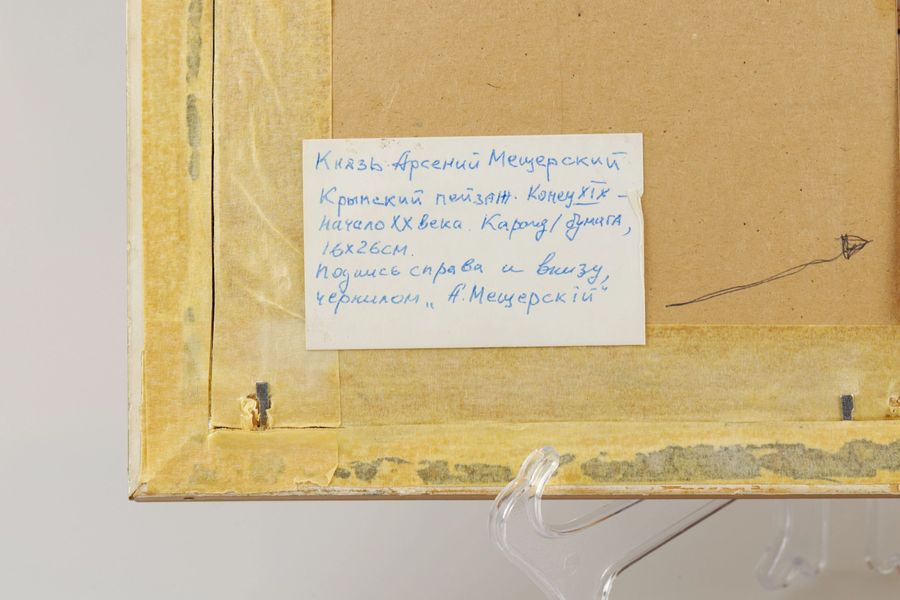 Князь Арсений Мещерский
Крымский пейзаж. Конец XIX -
Начало XX века. Картон/бумага,
16x26см.
Подпись справа и внизу,
чернилом „А.Мещерскій“